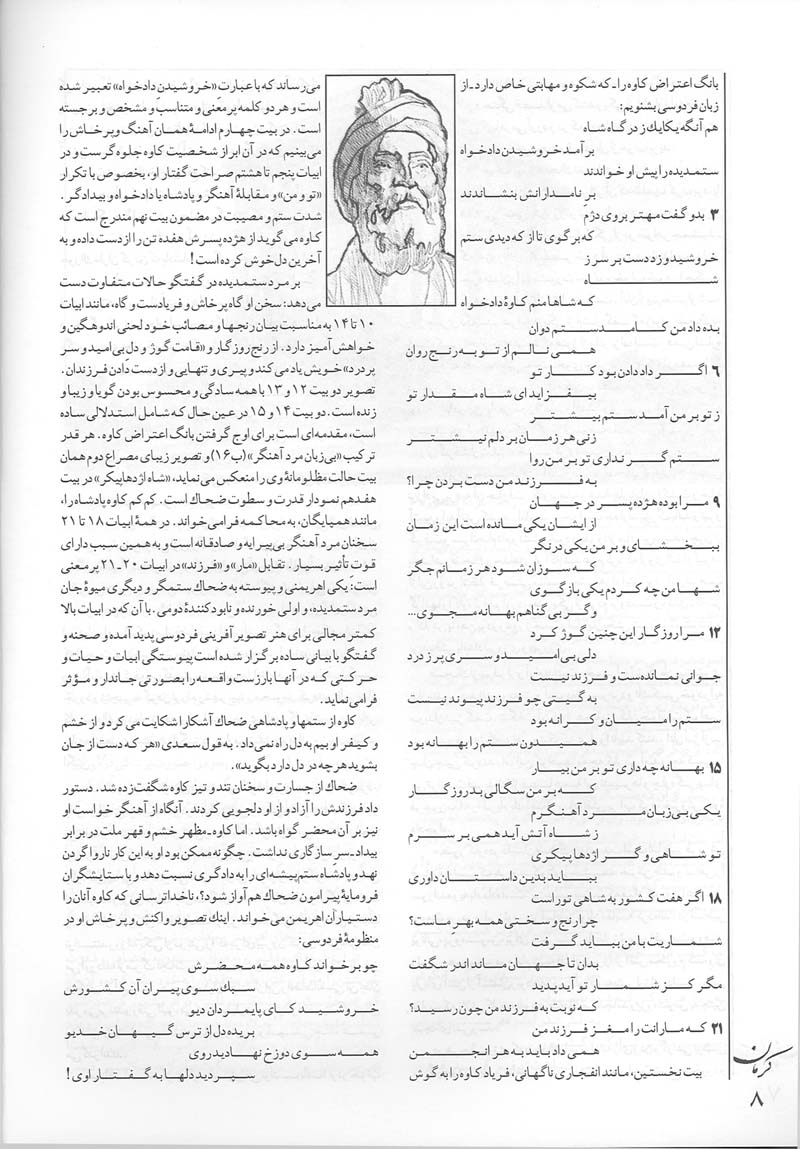 بانگ اعتراض کاوه را ـ که شکوه و مهابتی خاص دارد ـ از
زبان فردوسی بشنویم:
هم آنگه یکایك ز درگاه شاه
برآمد خروشیدن دادخواه
ستمدیده را پیش او خواندند
بر نامدارانش بنشاندند
۳ بدو گفت مهتر بروی دژم
که برگوی تا از که دیدی ستم
خروشید و زد دست بر سر ز
شاه
که شاها منم کاوهٔ دادخواه
بده داد من کامدستم دوان
همی نالم از تو به رنج روان
۶ اگر داد دادن بود کار تو
بیفزاید ای شاه مقدار تو
ز تو بر من آمد ستم بیشتر
زنی هر زمان بر دلم نیشتر
ستم گر نداری تو بر من روا
به فرزند من دست بردن چرا؟
۹ مرا بود هژده پسر در جهان
از ایشان یکی مانده است این زمان
ببخشای و بر من یکی در نگر
که سوزان شود هر زمانم جگر
شها من چه کردم یکی بازگوی
وگر بی گناهم بهانه مجوی...
۱۲ مرا روزگار این چنین گوژ کرد
دلی بی امید و سری پر ز درد
جوانی نمانده‌ست و فرزند نیست
به گیتی چو فرزند پیوند نیست
ستم را میان و کرانه بود
همیدون ستم را بهانه بود
۱۵ بهانه چه داری تو بر من بیار
که بر من سگالی بد روزگار
یکی بی زبان مرد آهنگرم
ز شاه آتش آید همی بر سرم
تو شاهی و گر اژدها پیکری
بباید بدین داستان داوری
۱۸ اگر هفت کشور به شاهی توراست
چرا رنج و سختی همه بهر ماست؟
شماریت با من بباید گرفت
بدان تا جهان ماند اندر شگفت
مگر کز شمار تو آید پدید
که نوبت به فرزند من چون رسید؟
۲۱ که مارانت را مغز فرزند من
همی داد باید به هر انجمن
بیت نخستین، مانند انفجاری ناگهانی، فریاد کاوه را به گوش
می رساند که با عبارت «خروشیدن دادخواه» تعبیر شده
است و هر دو کلمه پر معنی و متناسب و مشخص و برجسته
است. در بیت چهارم ادامهٔ همان آهنگ و پرخاش را
می بینیم که در آن ابراز شخصیت کاوه جلوه گرست و در
ابیات پنجم تا هشتم صراحت گفتار او، بخصوص با تکرار
«تو و من» و مقابلهٔ آهنگر و پادشاه یا دادخواه و بیدادگر.
شدت ستم و مصیبت در مضمون بیت نهم مندرج است که
کاوه می گوید از هژده پسرش هفده تن را از دست داده و به
آخرین دل خوش کرده است!
بر مرد ستمدیده در گفتگو حالات متفاوت دست
می دهد: سخن او گاه پرخاش و فریادست و گاه، مانند ابیات
۱۰ تا ۱۴ به مناسبت بیان رنجها و مصائب خود لحنی اندوهگین و
خواهش آمیز دارد. از رنج روزگار و «قامت گوژ و دل بی امید و سر
پر درد» خویش یاد می کند و پیری و تنهایی و از دست دادن فرزندان.
تصویر دو بیت ۱۲ و ۱۳ با همه سادگی و محسوس بودن گویا و زیبا و
زنده است. دو بیت ۱۴ و ۱۵ در عین حال که شامل استدلالی ساده
است، مقدمه ای است برای اوج گرفتن بانگ اعتراض کاوه. هر قدر
ترکیب «بی زبان مرد آهنگر» (ب۱۶) و تصویر زیبای مصراع دوم همان
بیت حالت مظلومانهٔ وی را منعکس می نماید، «شاه اژدهاپیکر» در بیت
هفدهم نمودار قدرت و سطوت ضحاك است. کم کم کاوه پادشاه را،
مانند همپایگان، به محاکمه فرا می خواند. در همهٔ ابیات ۱۸ تا ۲۱
سخنان مرد آهنگر بی پیرایه و صادقانه است و به همین سبب دارای
قوت تأثیر بسیار. تقابل «مار» و «فرزند» در ابیات ۲۰ـ۲۱ پر معنی
است: یکی اهریمنی و پیوسته به ضحاك ستمگر و دیگری میوهٔ جان
مرد ستمدیده، و اولی خورنده و نابودکنندهٔ دومی. با آن که در ابیات بالا
کمتر مجالی برای هنر تصویر آفرینی فردوسی پدید آمده و صحنه و
گفتگو با بیانی ساده برگزار شده است پیوستگی ابیات و حیات و
حرکتی که در آنها بارزست واقعه را بصورتی جاندار و مؤثر
فرا می نماید.
کاوه از ستمها و پادشاهی ضحاك آشکارا شکایت می کرد و از خشم
و کیفر او بیم به دل راه نمی داد. به قول سعدی «هر که دست از جان
بشوید هر چه در دل دارد بگوید».
ضحاك از جسارت و سخنان تند و تیز کاوه شگفت زده شد. دستور
داد فرزندش را آزاد و از او دلجویی کردند. آنگاه از آهنگر خواست او
نیز بر آن محضر گواه باشد. اما کاوه ـ مظهر خشم و قهر ملت در برابر
بیداد ـ سر سازگاری نداشت. چگونه ممکن بود او به این کار ناروا گردن
نهد و پادشاه ستم پیشه ای را به دادگری نسبت دهد و با ستایشگران
فرومایهٔ پیرامون ضحاك هم آواز شود؟، ناخداترسانی که کاوه آنان را
دستیاران اهریمن می خواند. اینك تصویر واکنش و پرخاش او در
منظومهٔ فردوسی:
چو برخواند کاوه همه محضرش
سبك سوی پیران آن کشورش
خروشید کای پایمردان دیو
بریده دل از ترس گیهان خدیو
همه سوی دوزخ نهادید روی
سپردید دلها به گفتار اوی!
کرمان
۸